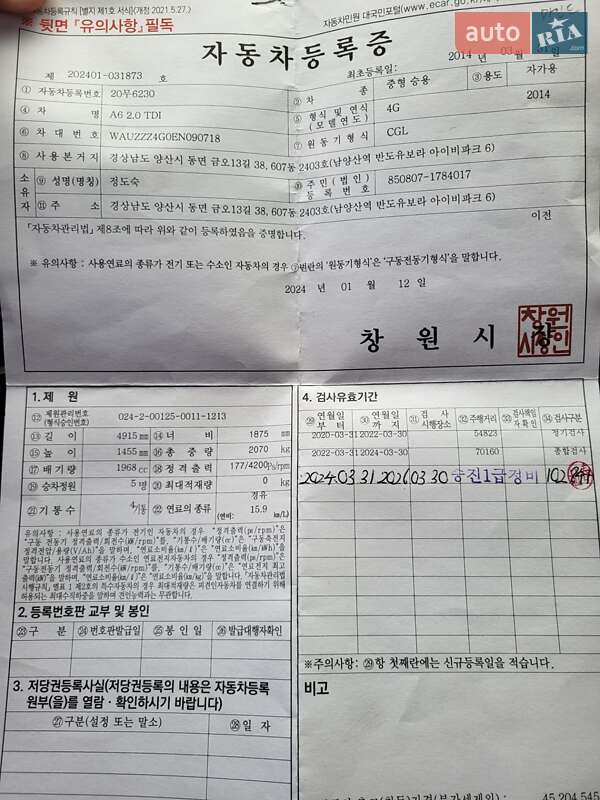 자동차등록규칙 [별지 제1호 서식](개정 2021.5.27.)
자동차민원 대국민포털(www.ecar.go.kr
※ 뒷면 『유의사항』 필독
auto RIA.com
자동차등록증
제 202401-031873 호
최초등록일: 2014 년 03 월
① 자동차등록번호 20무6230 ② 차 종 중형 승용 ③ 용도 자가용
④ 차 명 A6 2.0 TDI ⑤ 형식 및 연식 (모델연도) 4G 2014
⑥ 차 대 번 호 WAUZZZ4G0EN090718 ⑦ 원동기형식 CGL
⑧ 사용본거지 경상남도 양산시 동면 금오13길 38, 607동 2403호(남양산역 반도유보라 아이비파크 6)
소유자 ⑨ 성명(명칭) 정도숙 ⑩ 주민(법인)등록번호 850807-1784017
⑪ 주 소 경상남도 양산시 동면 금오13길 38, 607동 2403호(남양산역 반도유보라 아이비파크 6)
「자동차관리법」 제8조에 따라 위와 같이 등록하였음을 증명합니다.
이전
※ 유의사항 : 사용연료의 종류가 전기 또는 수소인 자동차의 경우 ⑦번란의 '원동기형식'은 '구동전동기형식'을 말합니다.
2024 년 01 월 12 일
창 원 시 장
창원시장인
1. 제 원
⑫ 제원관리번호 (형식승인번호) 024-2-00125-0011-1213
⑬ 길 이 4915 mm ⑭ 너 비 1875 mm
⑮ 높 이 1455 mm ⑯ 총 중 량 2070 kg
⑰ 배 기 량 1968 cc ⑱ 정격출력 177/4200 Ps/rpm
⑲ 승차정원 5 명 ⑳ 최대적재량 0 kg
㉑ 기 통 수 4기통 ㉒ 연료의 종류 경유 (연비: 15.9 km/L)
유의사항 : 사용연료의 종류가 전기인 자동차의 경우 "정격출력(ps/rpm)"은
"구동 전동기 정격출력/회전수(kW/rpm)"를, "기통수/배기량(cc)"은 "구동축전지
정격전압/용량(V/Ah)"을 말하며, "연료소비율(km/ℓ)"은 "연료소비율(km/kWh)"을
말합니다. 사용연료의 종류가 수소인 연료전지자동차의 경우 "정격출력(ps/rpm)"은
"구동전동기 정격출력/회전수(kW/rpm)"를, "기통수/배기량(cc)"은 "연료전지 최고
출력(kW)"을 말하며, "연료소비율(km/ℓ)"은 "연료소비율(km/kg)"을 말합니다. 「자동차관리법
시행규칙」 별표 1 제2호의 특수자동차의 경우 최대적재량은 피견인자동차를 연결하기 위해
허용되는 최대수직하중을 말하며 견인능력과는 무관합니다.
2. 등록번호판 교부 및 봉인
㉓ 구 분 ㉔ 번호판발급일 ㉕ 봉 인 일 ㉖ 발급대행자확인
3. 저당권등록사실(저당권등록의 내용은 자동차등록
원부(을)를 열람ㆍ확인하시기 바랍니다)
㉗ 구분(설정 또는 말소) ㉘ 일 자
4. 검사유효기간
㉙ 연월일부터 ㉚ 연월일까지 ㉛ 검사시행장소 ㉜ 주행거리 ㉝ 검사책임자확인 ㉞ 검사구분
2020-03-31 2022-03-30 54823 정기검사
2022-03-31 2024-03-30 70160 종합검사
2024.03 31 2026 03 30 승진1급정비
※주의사항: ㉙ 항 첫째란에는 신규등록일을 적습니다.
비고
45,204,545